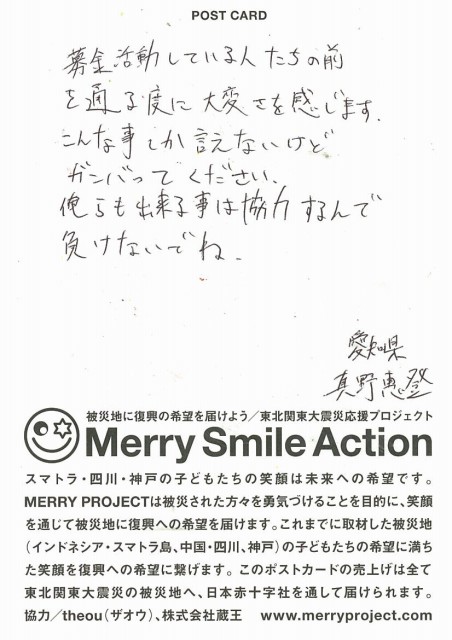 POST CARD
募金活動している人たちの前
を通る度に大変さを感じます.
こんな事しか言えないけど
ガンバってください.
俺らも出来る事は協力するんで
負けないでね.
愛知県
真野恵登
被災地に復興の希望を届けよう／東北関東大震災応援プロジェクト
Merry Smile Action
スマトラ・四川・神戸の子どもたちの笑顔は未来への希望です。
MERRY PROJECTは被災された方々を勇気づけることを目的に、笑顔
を通じて被災地に復興への希望を届けます。これまでに取材した被災地
（インドネシア・スマトラ島、中国・四川、神戸）の子どもたちの希望に満ち
た笑顔を復興への希望に繋げます。このポストカードの売上げは全て
東北関東大震災の被災地へ、日本赤十字社を通して届けられます。
協力／theou（ザオウ）、株式会社蔵王 www.merryproject.com